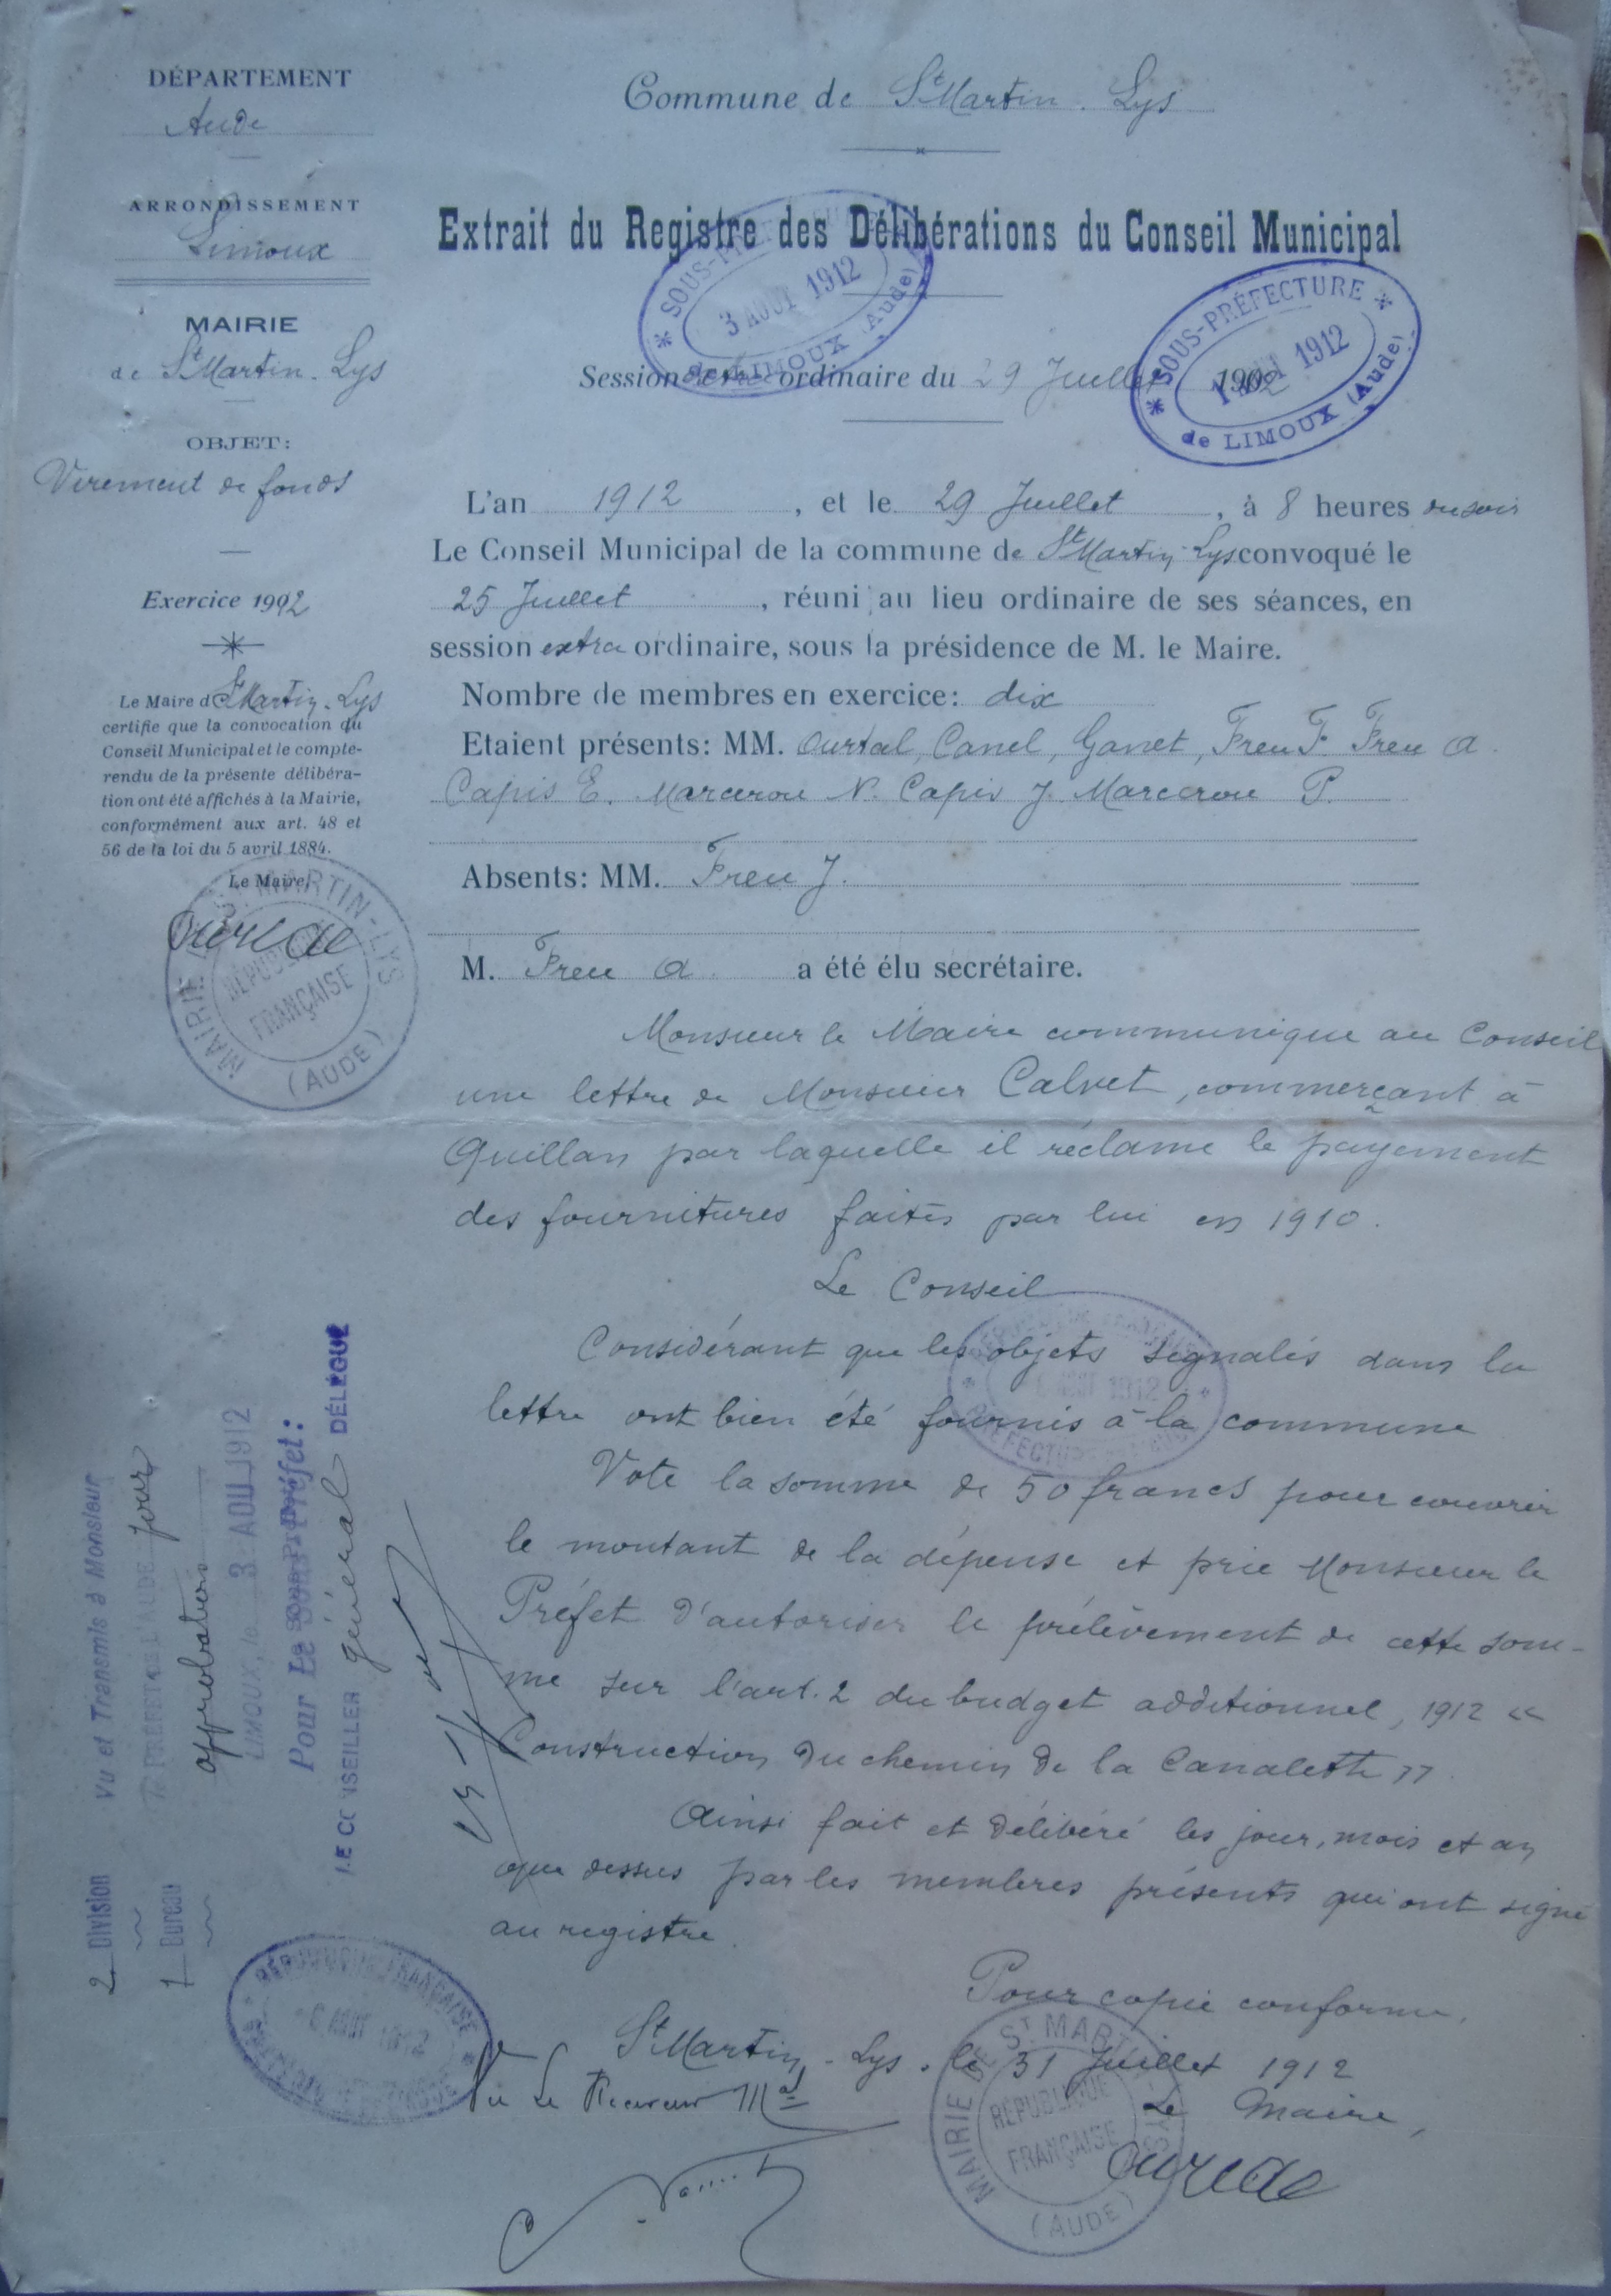 DÉPARTEMENT
Aude
ARRONDISSEMENT
Limoux
MAIRIE
de St Martin-Lys
OBJET:
Virement de fonds
Exercice 1912
Le Maire de St Martin-Lys
certifie que la convocation du
Conseil Municipal et le compte-
rendu de la présente délibéra-
tion ont été affichés à la Mairie,
conformément aux art. 48 et
56 de la loi du 5 avril 1884.
Le Maire,
MAIRIE DE ST MARTIN-LYS
RÉPUBLIQUE
FRANÇAISE
(AUDE)
Commune de St Martin-Lys
Extrait du Registre des Délibérations du Conseil Municipal
SOUS-PRÉFECTURE
3 AOUT 1912
de LIMOUX (Aude)
SOUS-PRÉFECTURE
1912
de LIMOUX (Aude)
Session ordinaire du 29 Juillet
L'an 1912, et le 29 Juillet, à 8 heures du soir
Le Conseil Municipal de la commune de St Martin-Lys convoqué le
25 Juillet, réuni au lieu ordinaire de ses séances, en
session extra ordinaire, sous la présidence de M. le Maire.
Nombre de membres en exercice: dix
Etaient présents: MM. Ourtal, Canel, Ganet, Freu F. Freu A.
Capis E. Marcerou N. Capis J. Marcerou P.
Absents: MM. Freu J.
M. Freu A. a été élu secrétaire.
Monsieur le Maire communique au Conseil
une lettre de Monsieur Calvet, commerçant à
Quillan par laquelle il réclame le payement
des fournitures faites par lui en 1910.
Le Conseil
Considérant que les objets signalés dans la
lettre ont bien été fournis à la commune
Vote la somme de 50 francs pour couvrir
le montant de la dépense et prie Monsieur le
Préfet d'autoriser le prélèvement de cette som-
me sur l'art. 2 du budget additionnel, 1912 «
Construction du chemin de la Canalette »
Ainsi fait et délibéré les jour, mois et an
que dessus par les membres présents qui ont signé
au registre.
Pour copie conforme,
St Martin-Lys, le 31 Juillet 1912
Le Maire,
MAIRIE DE ST MARTIN-LYS
RÉPUBLIQUE
FRANÇAISE
(AUDE)
Vu Le Receveur Mal
2 Division
1 Bureau
Vu et Transmis à Monsieur
le PRÉFET DE L'AUDE pour
approbation
LIMOUX, le 3 AOU 1912
Pour Le Sous-Préfet:
LE CONSEILLER général DÉLÉGUÉ
RÉPUBLIQUE FRANÇAISE
AOUT 1912